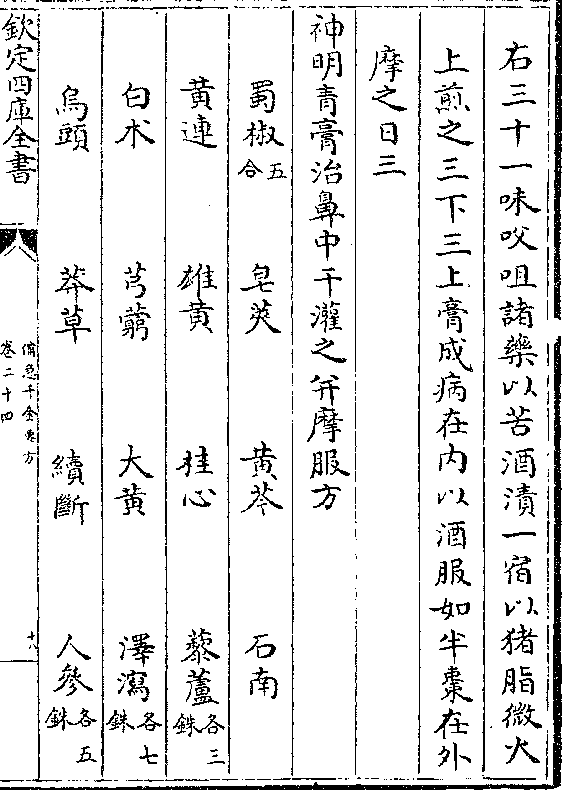 右三十一味㕮咀諸藥以苦酒漬一宿以猪脂微火
上煎之三下三上膏成病在内以酒服如半棗在外
摩之日三
神明青膏治鼻中干灌之并摩服方
蜀椒五合 皂莢 黄芩 石南
黄連 雄黄 桂心 藜蘆各三銖
白朮 芎藭 大黄 澤瀉各七銖
烏頭 莽草 續斷 人參各五銖
欽定四庫全書
備急千金要方
卷二十四
十八